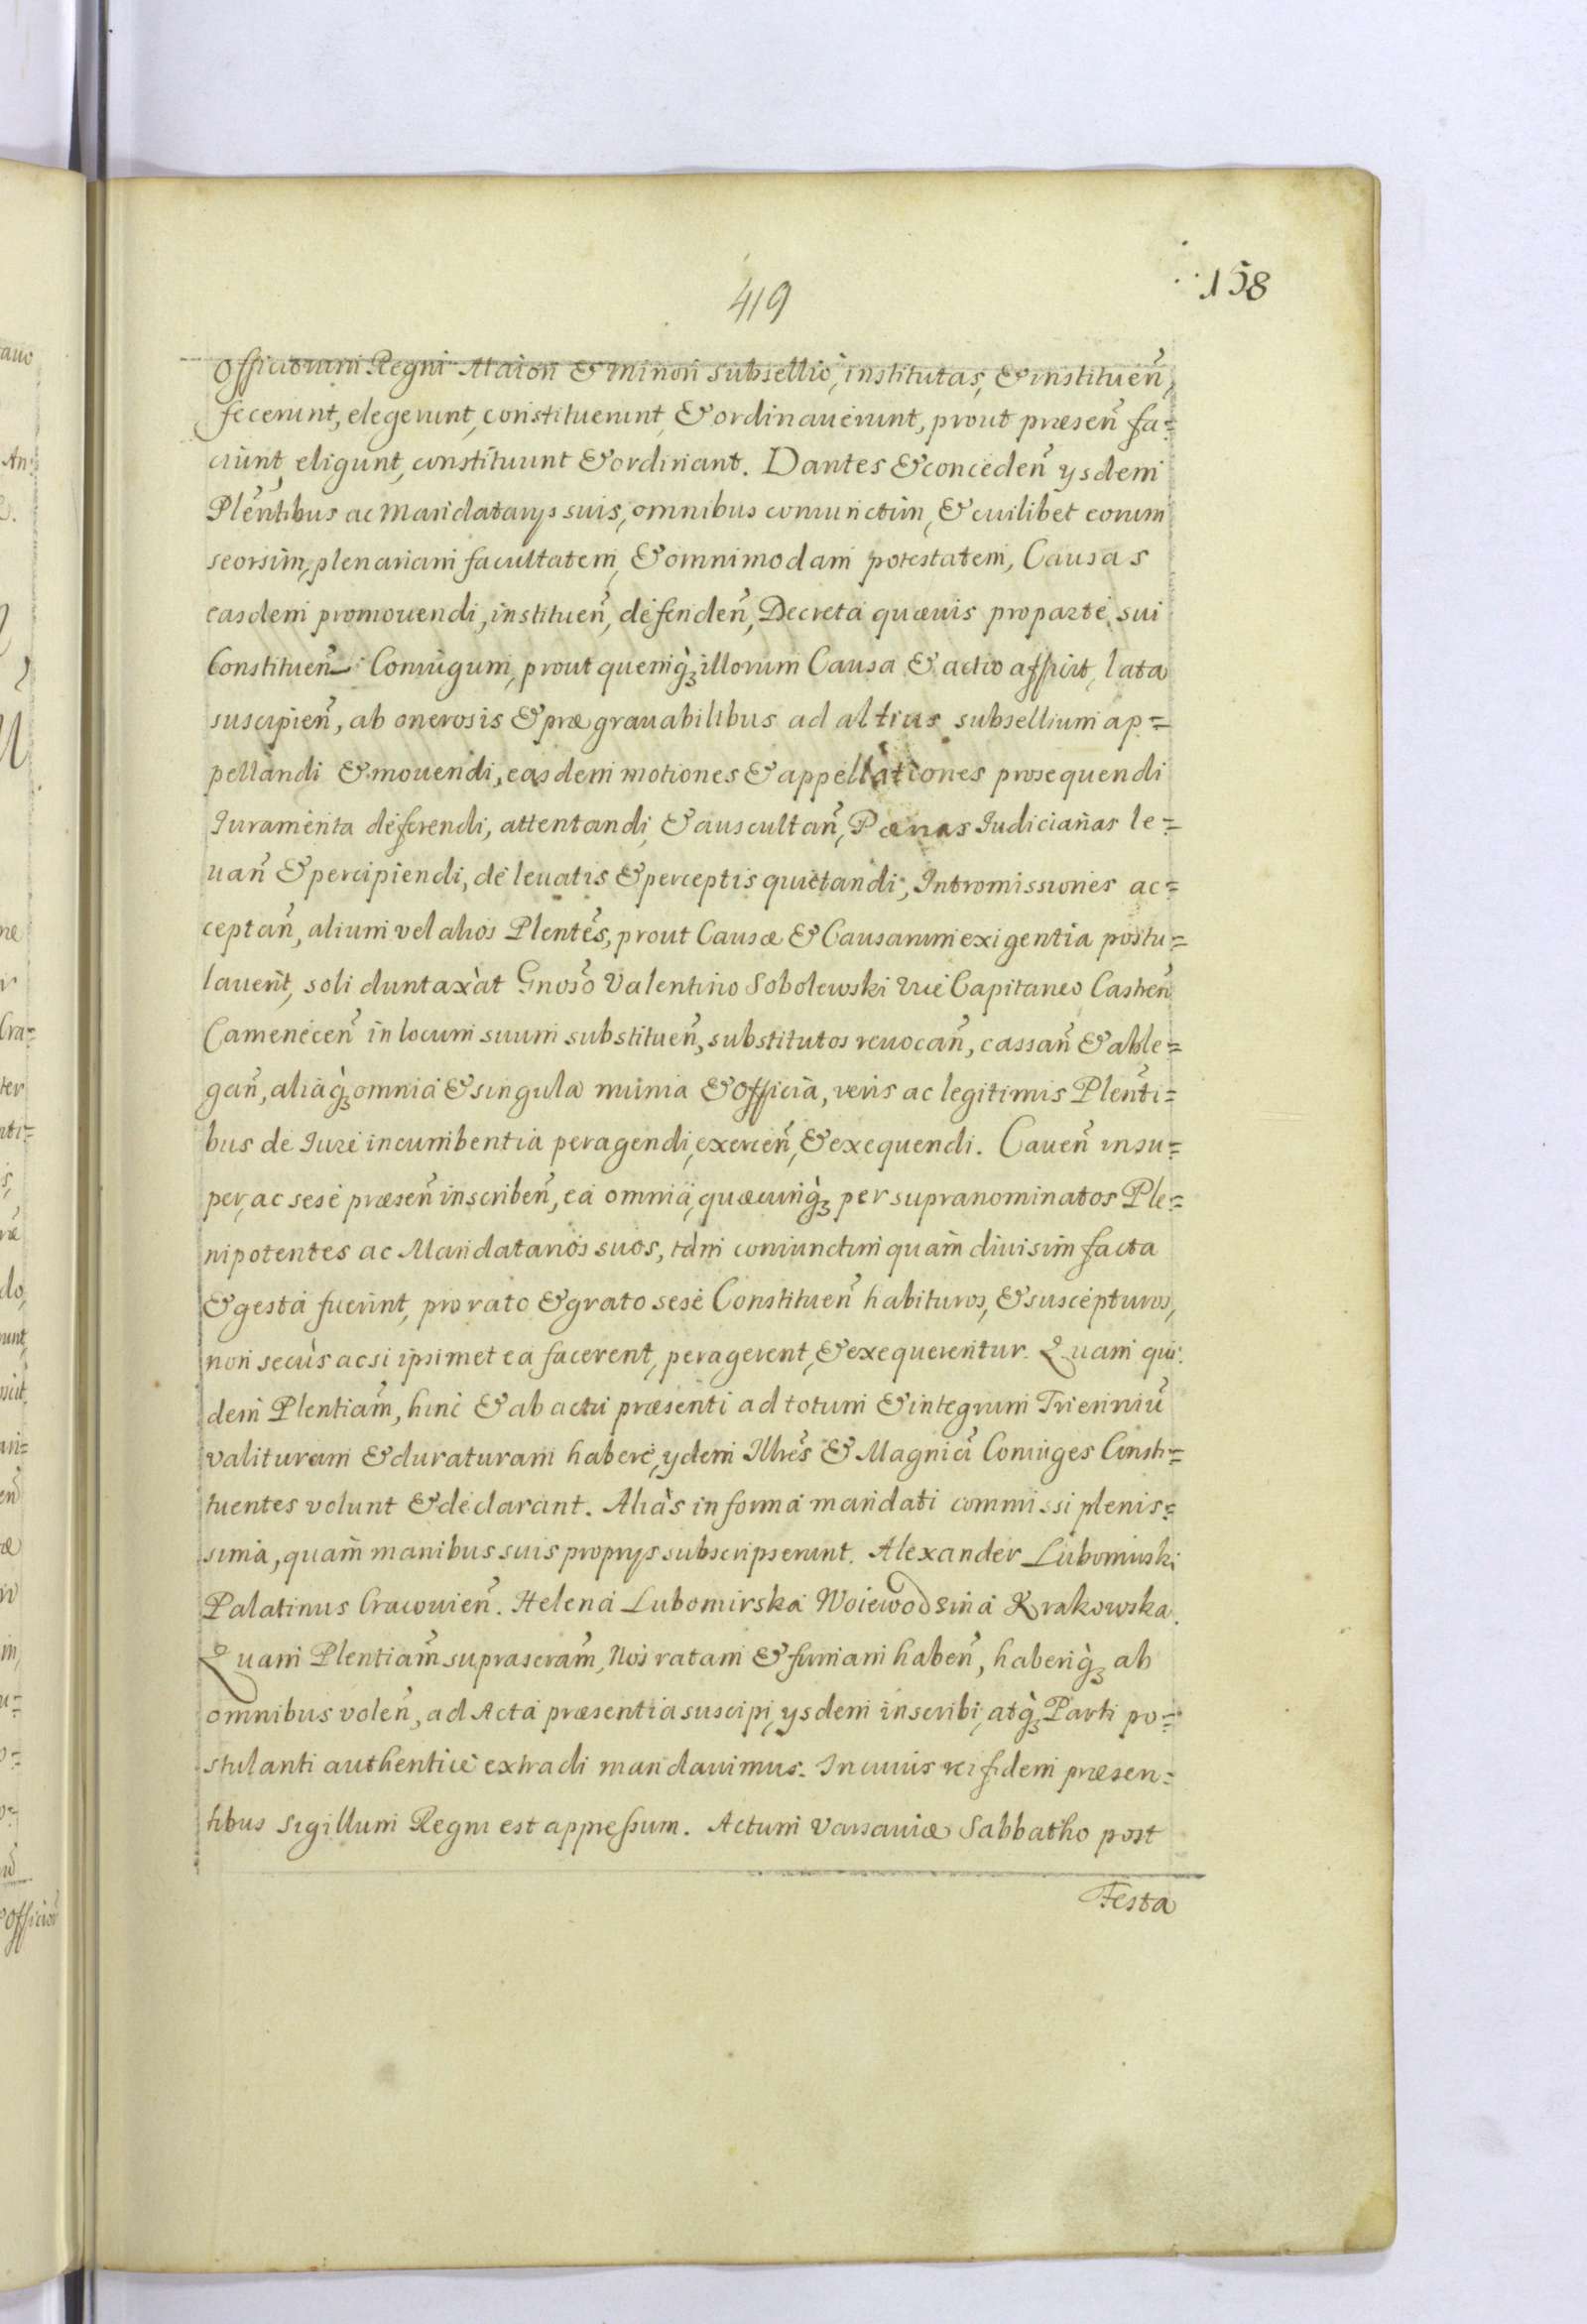 158
419
Officiorum Regni Maiori & minori subsellio, institutas, & instituen̄,
fecerunt, elegerunt, constituerunt & ordinauerunt, prout præsen̄ fa=
ciunt, eligunt, constituunt & ordinant. Dantes & conceden̄ ysdem
Plen̄tibus ac Mandatarys suis, omnibus coniunctim, & cuilibet eorum
seorsim, plenariam facultatem, & omnimodam potestatem, Causas
easdem promouendi, instituen̄, defenden̄, Decreta quæuis pro parte sui
Constituen̄ Coniugum, prout quemq̀ꝫ illorum Causa & actio afficit, lata
suscipien̄, ab onerosis & prægrauabilibus ad altius subsellium ap=
pellandi & mouendi, easdem motiones & appellationes prosequendi
Iuramenta deferendi, attentandi, & auscultan̄, Pœnas Iudiciarias le=
uan̄ & percipiendi, de leuatis & perceptis quietandi, Intromissiones ac=
ceptan̄, alium vel alios Plentēs, prout Causæ & Causarum exigentia postu=
lauerit, soli duntaxàt Gnosō Valentino Sobolewski Vice Capitaneo Castren̄
Camenecen̄ in locum suum substituen̄, substitutos reuocan̄, cassan̄ & able=
gan̄, aliaq̀ꝫ omnia & singula munia & Officia, veris ac legitimis Plen̄ti=
bus de Iure incumbentia peragendi, exercen̄, & exequendi. Cauen̄ insu=
per, ac sese præsen̄ inscriben̄, ea omnia, quæcunq̀ꝫ per supranominatos Ple=
nipotentes ac Mandatarios suos, tàm coniunctim quam̀ diuisim facta
& gesta fuerint, pro rato & grato sese Constituen̄ habituros, & suscepturos,
non secùs acsi ipsimet ea facerent, peragerent, & exequerentur. Quam qui=
dem Plentiam̄, hinc & ab actu præsenti ad totum & integrum Trienniū
valituram & duraturam habere, ydem Illrēs & Magnicī Coniuges Consti=
tuentes volunt & declarant. Aliàs in forma mandati commissi plenis=
sima, quam̀ manibus suis proprys subscripserunt. Alexander Lubomirski
Palatinus Cracouien̄. Helena Lubomirska Woiewodzina Krakowska.
Quam Plentiam̄ suprascram̄, Nos ratam & firmam haben̄, haberiq̀ꝫ ab
omnibus volen̄, ad Acta præsentia suscipi, ysdem inscribi, atq̀ꝫ Parti po=
stulanti authentice extradi mandauimus. In cuius rei fidem præsen=
tibus Sigillum Regni est appressum. Actum Varsauiæ Sabbatho post
Festa